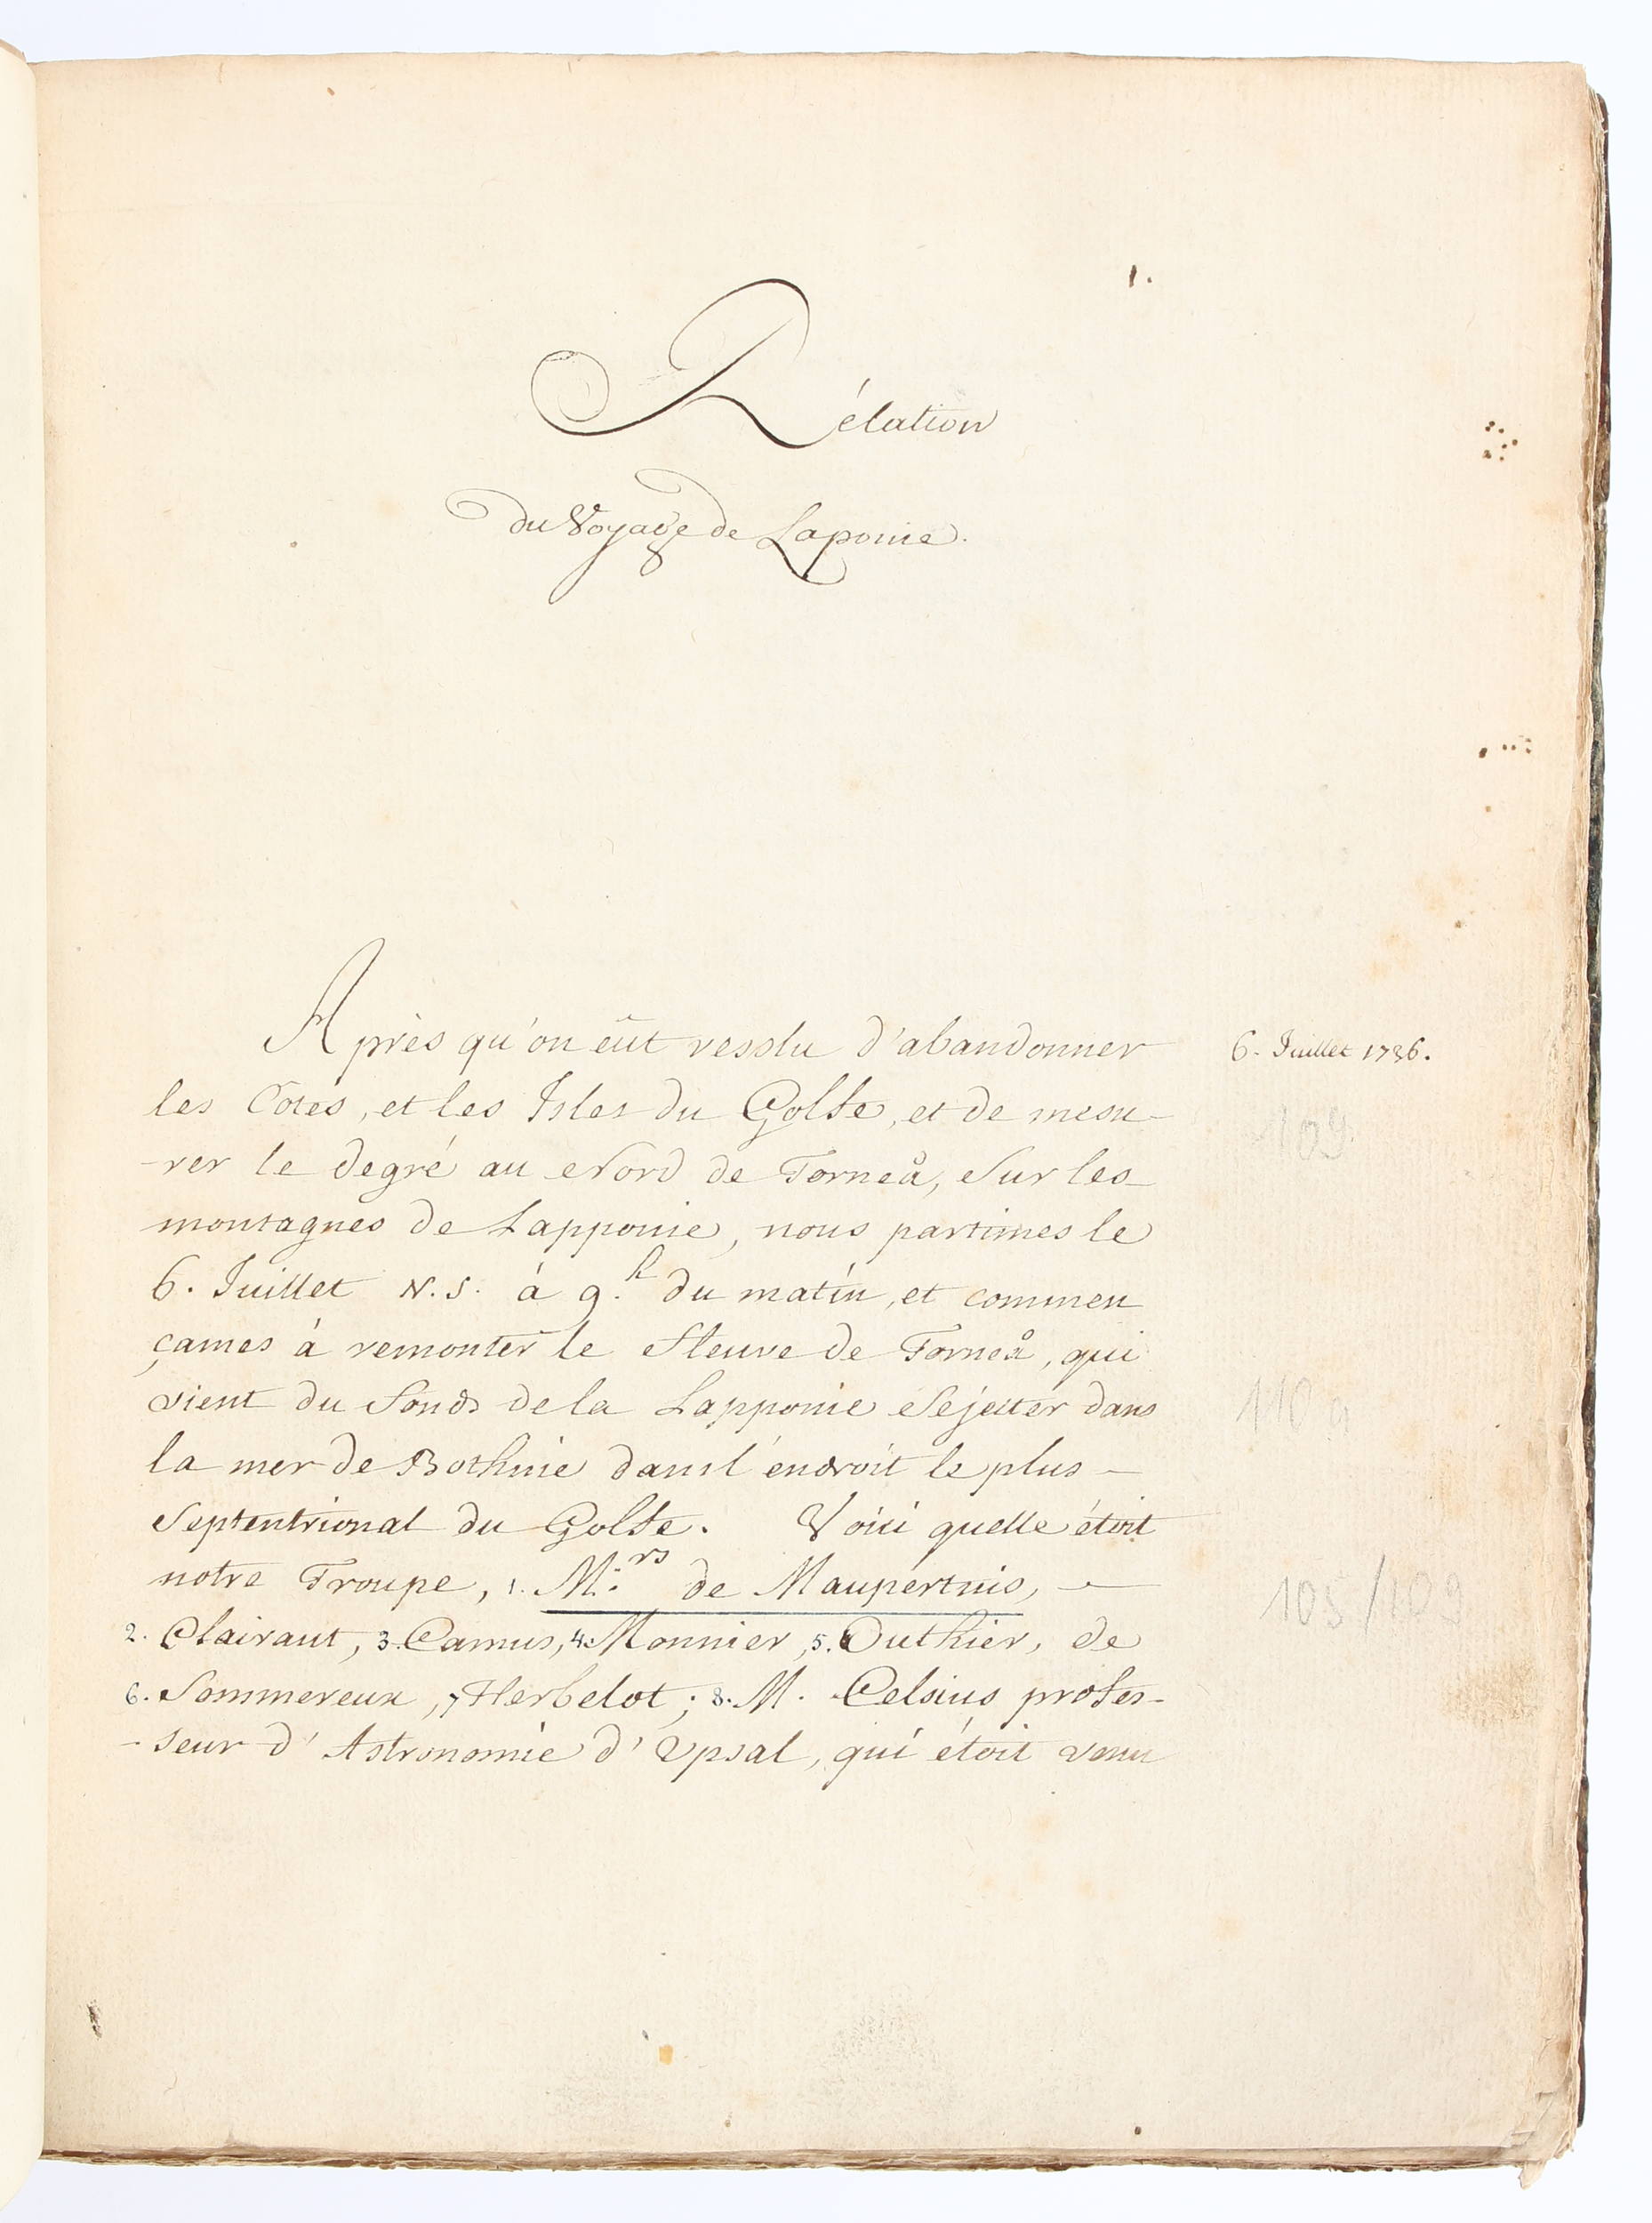 1.
Rélation
du Voyage de Laponie.
Après qu'on eût resolu d'abandonner
6. Juillet 1736.
les Côtes, et les Isles du Golfe, et de mesu-
109.
-rer le degré au Nord de Torneå, Sur les
montagnes de Lapponie, nous partimes le
6. Juillet N.S. à 9.h du matin, et commen
çames à remonter le fleuve de Torneå, qui
vient du fonds de la Lapponie Se jetter dans
110 a
la mer de Bothnie dans l'endroit le plus
Septentrional du Golfe. Voici quelle étoit
notre Troupe, 1. M.rs de Maupertuis,
105/109
2. Clairaut, 3. Camus, 4. Monnier, 5. Outhier, de
6. Sommereux, 7 Herbelot; 8. M. Celsius profes-
-seur d'Astronomie d'Upsal, qui étoit venu